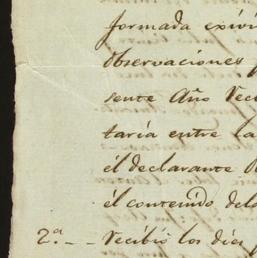 formada exivi
observaciones
sente Año Veci
taria entre la
él declarante
él contenido del
2.ª - - Recibio los dies